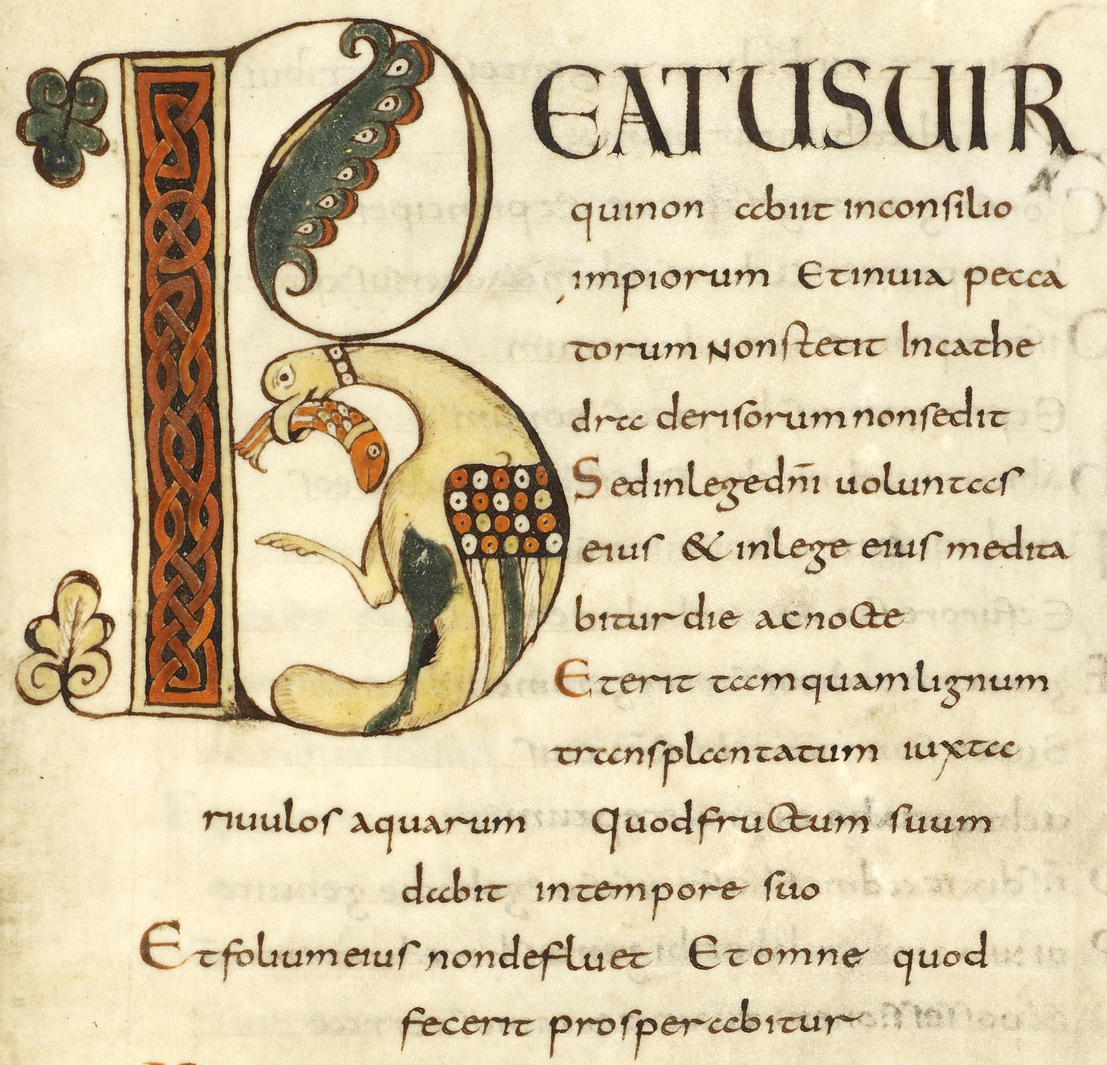 BEATUSUIR
quinon abiit inconsilio
impiorum Etinuia pecca
torum Nonstetit Incathe
dra derisorum nonsedit
Sedinlegedn̄i uoluntas
eius & inlege eius medita
bitur die ac nocte
Eterit tamquamlignum
transplantatum iuxta
riuulos aquarum Quodfructum suum
dabit intempore suo
Etfoliumeius nondefluet Etomne quod
fecerit prosperabitur